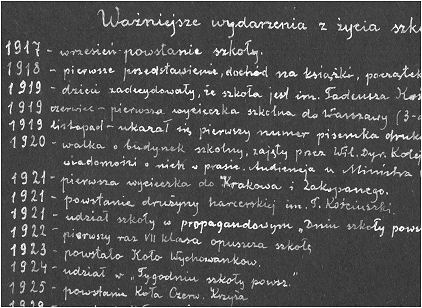 Ważniejsze wydarzenia z życia szko
1917 - wrzesień powstanie szkoły.
1918 - pierwsze przedstawienie, dochód na książki, początek
1919 - dzieci zadecydowały, że szkoła jest im. Tadeusza Koś
1919 czerwiec - pierwsza wycieczka szkolna do Warszawy (3-d
1919 listopad - ukazał się pierwszy numer pisemka druko
1920 - walka o budynek szkolny, zajęty przez Wil. Dyr. Kolej
wiadomości o nich w prasie. Audiencja u Ministra
1921 - pierwsza wycieczka do Krakowa i Zakopanego.
1921 - powstanie drużyny harcerskiej im. T. Kościuszki.
1921 - udział szkoły w propagandowym "Dniu szkoły pows
1922 - pierwszy raz VII klasa opuszcza szkołę
1923 - powstało Koło Wychowanków.
1924 - udział w "Tygodniu szkoły powsz."
1925 - powstanie Koła Czerw. Krzyża